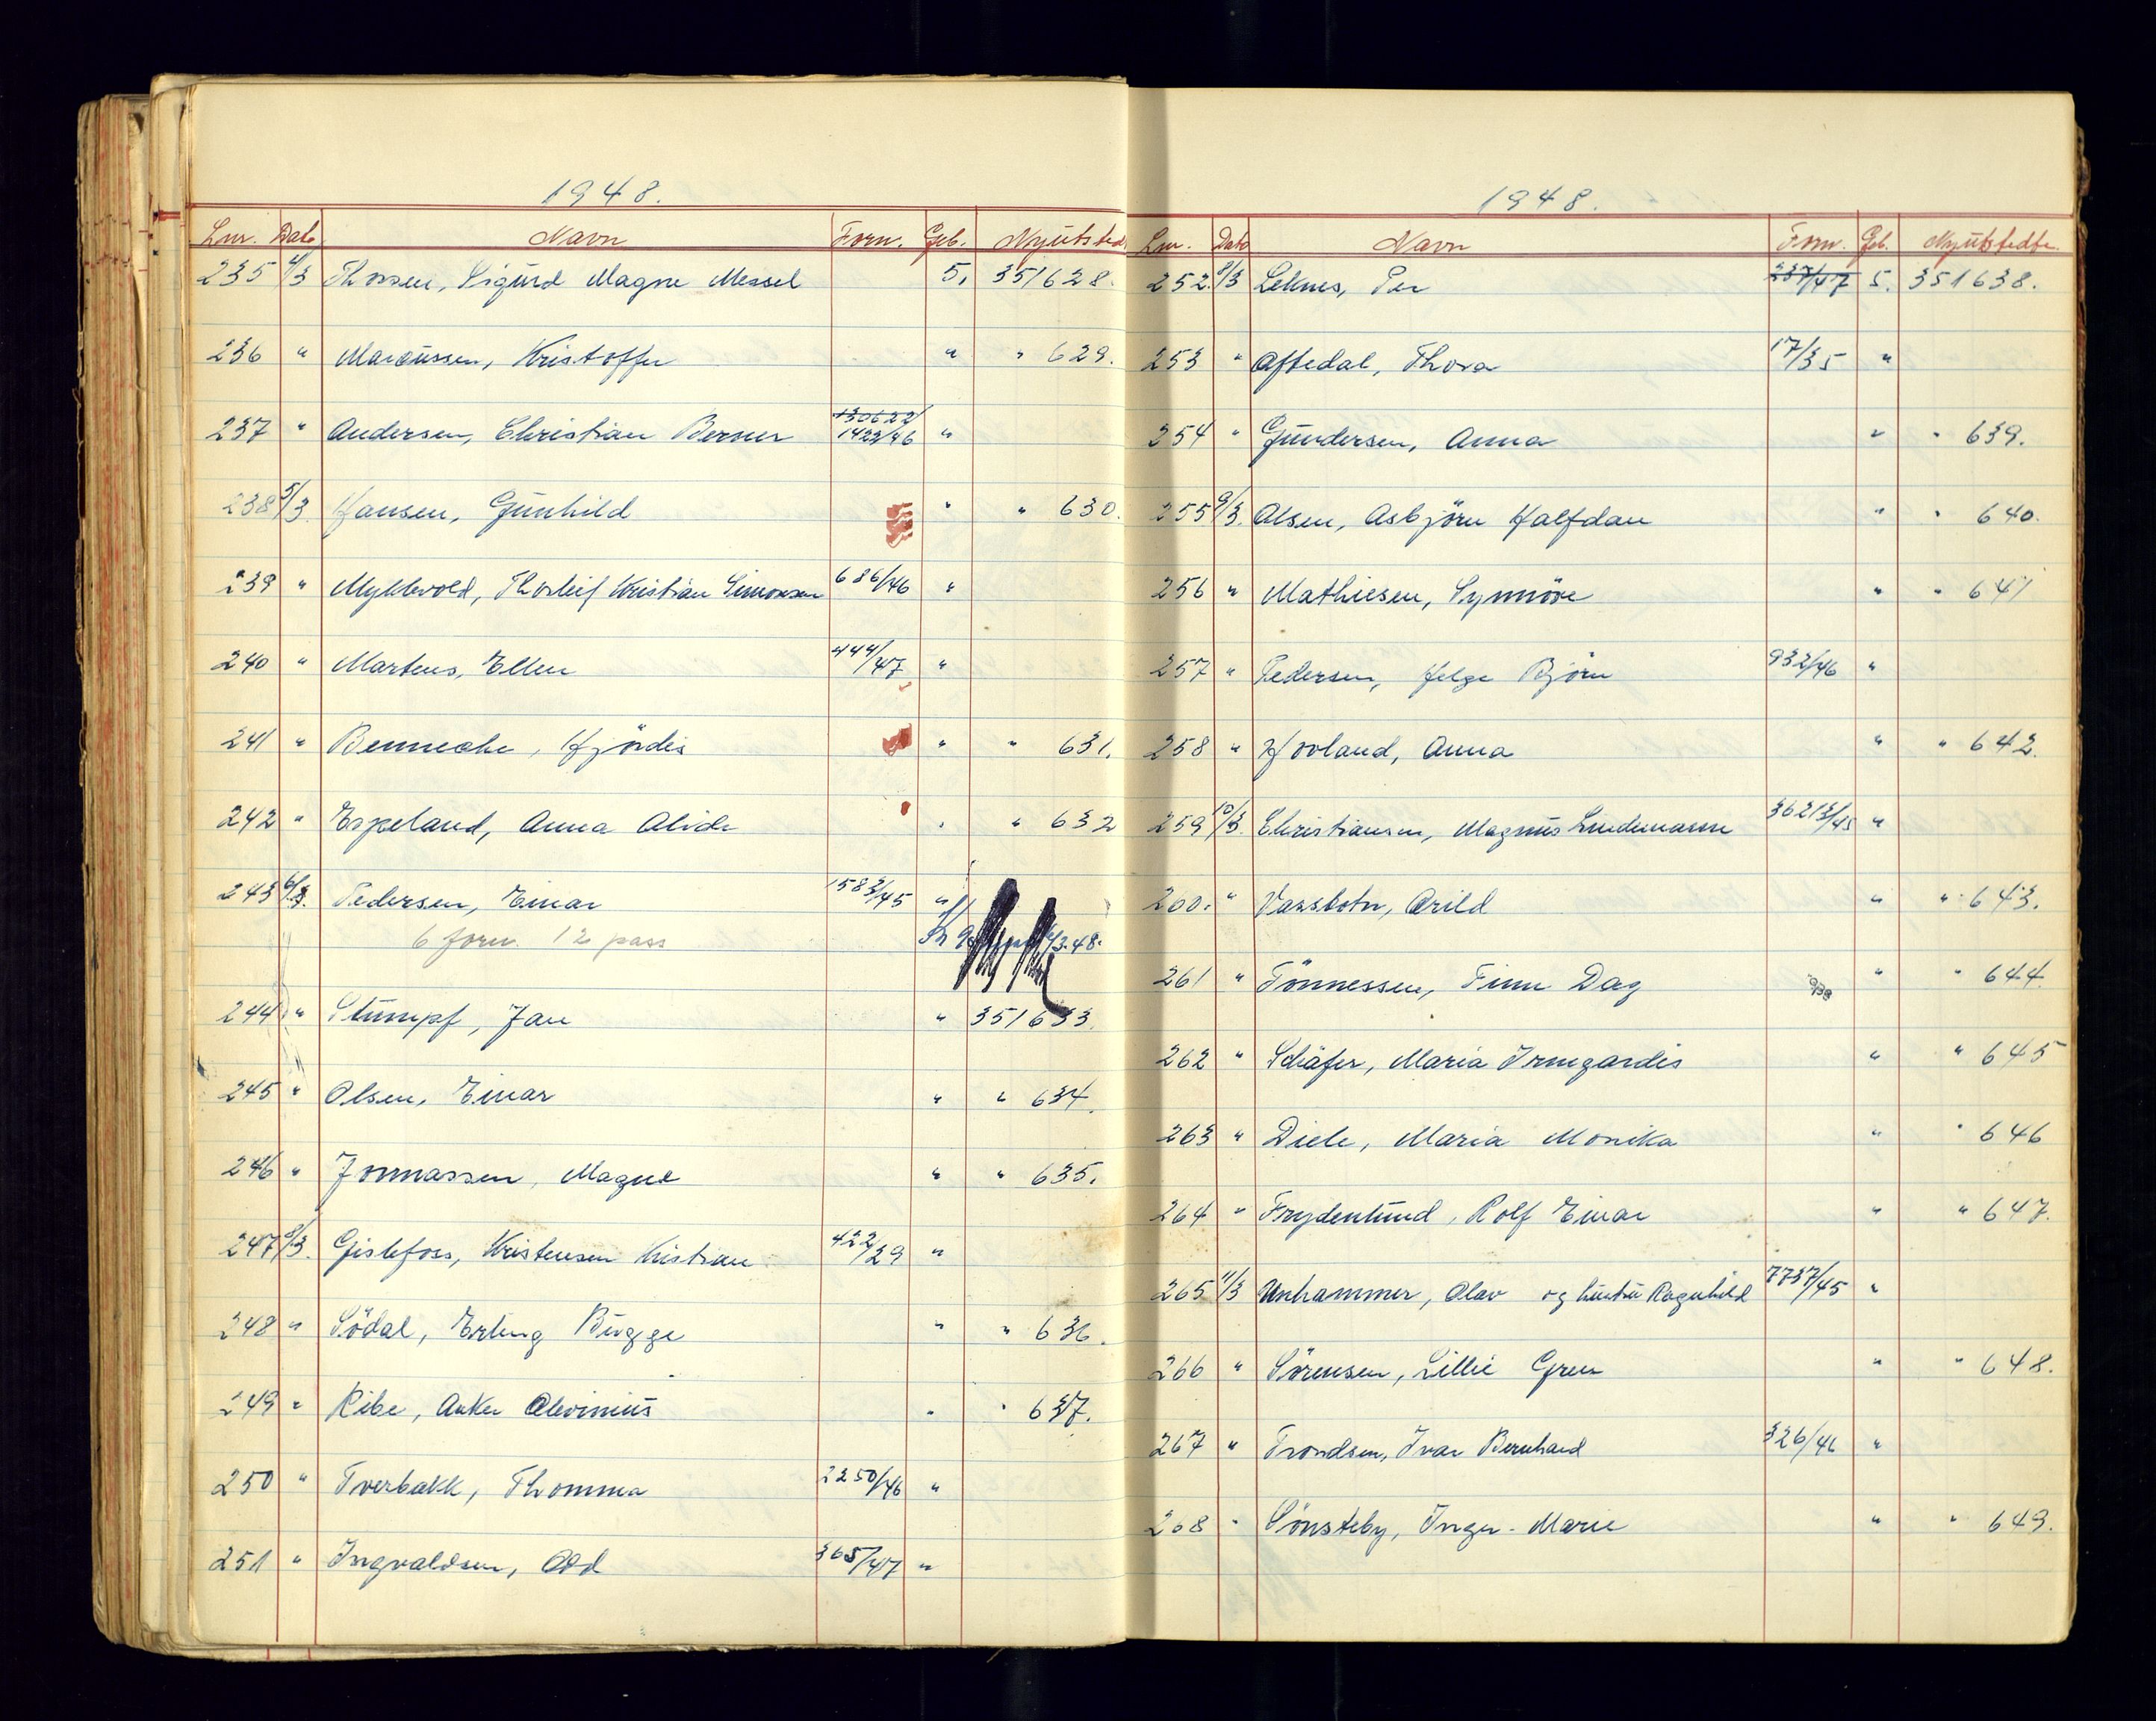 1948.
Lnr. Dato Navn Forn. Geb. Nyutsted
235 4/3 Thorsen, Sigurd Magne Messel 5, 351628.
236 " Marcussen, Kristoffer " " 629.
237 " Andersen, Christian Berner 1422/46 "
238 5/3. Hansen, Gunhild " " 630.
239 " Myklevold, Thorleif Kristian Simonsen 686/46 "
240 " Martens, Ellen 444/47 "
241 " Benneche, Hjördis " " 631.
242 " Espeland, Anna Alide " " 632
243 6/3. Pedersen, Einar 1583/45 "
6 forn. 12 pass
3.48.
244 " Stumpf, Jan " 351633.
245 " Olsen, Einar " " 634.
246 " Jonnassen, Magne " " 635.
247 8/3. Gislefoss, Kristensen Kristian 422/29 "
248 " Södal, Erling Bugge " " 636.
249 " Ribe, Anker Alevinius " " 637.
250 " Tverbakk, Thomma 2250/46 "
251 " Ingvaldsen, Odd 365/47 "
1948.
Lnr. Dato Navn Forn. Geb. Nyutstedte
252. 8/3 Leknes, Per 237/47 5. 351638.
253 " Aftedal, Thora 17/35 "
254 " Gundersen, Anna " " 639.
255 9/3. Olsen, Asbjörn Halfdan " " 640.
256 " Mathiesen, Synnöve " " 641
257 " Pedersen, Helge Björn 932/46 "
258 " Hovland, Anna " " 642.
259 10/3. Christiansen, Magnus Lindemann 36213/45 "
260. " Vassbotn, Arild " " 643.
261 " Tönnessen, Finn Dag " " 644.
262 " Schäfer, Maria Irmgardis " " 645
263 " Diele, Maria Monika " " 646
264 " Frydenlund, Rolf Einar " " 647.
265 11/3 Unhammer, Olav og hustru Ragnhild 7737/45 "
266 " Sörensen, Lillie Gren " " 648.
267 " Trondsen, Ivar Bernhard 326/46 "
268 " Sönsteby, Inger-Marie " " 649.